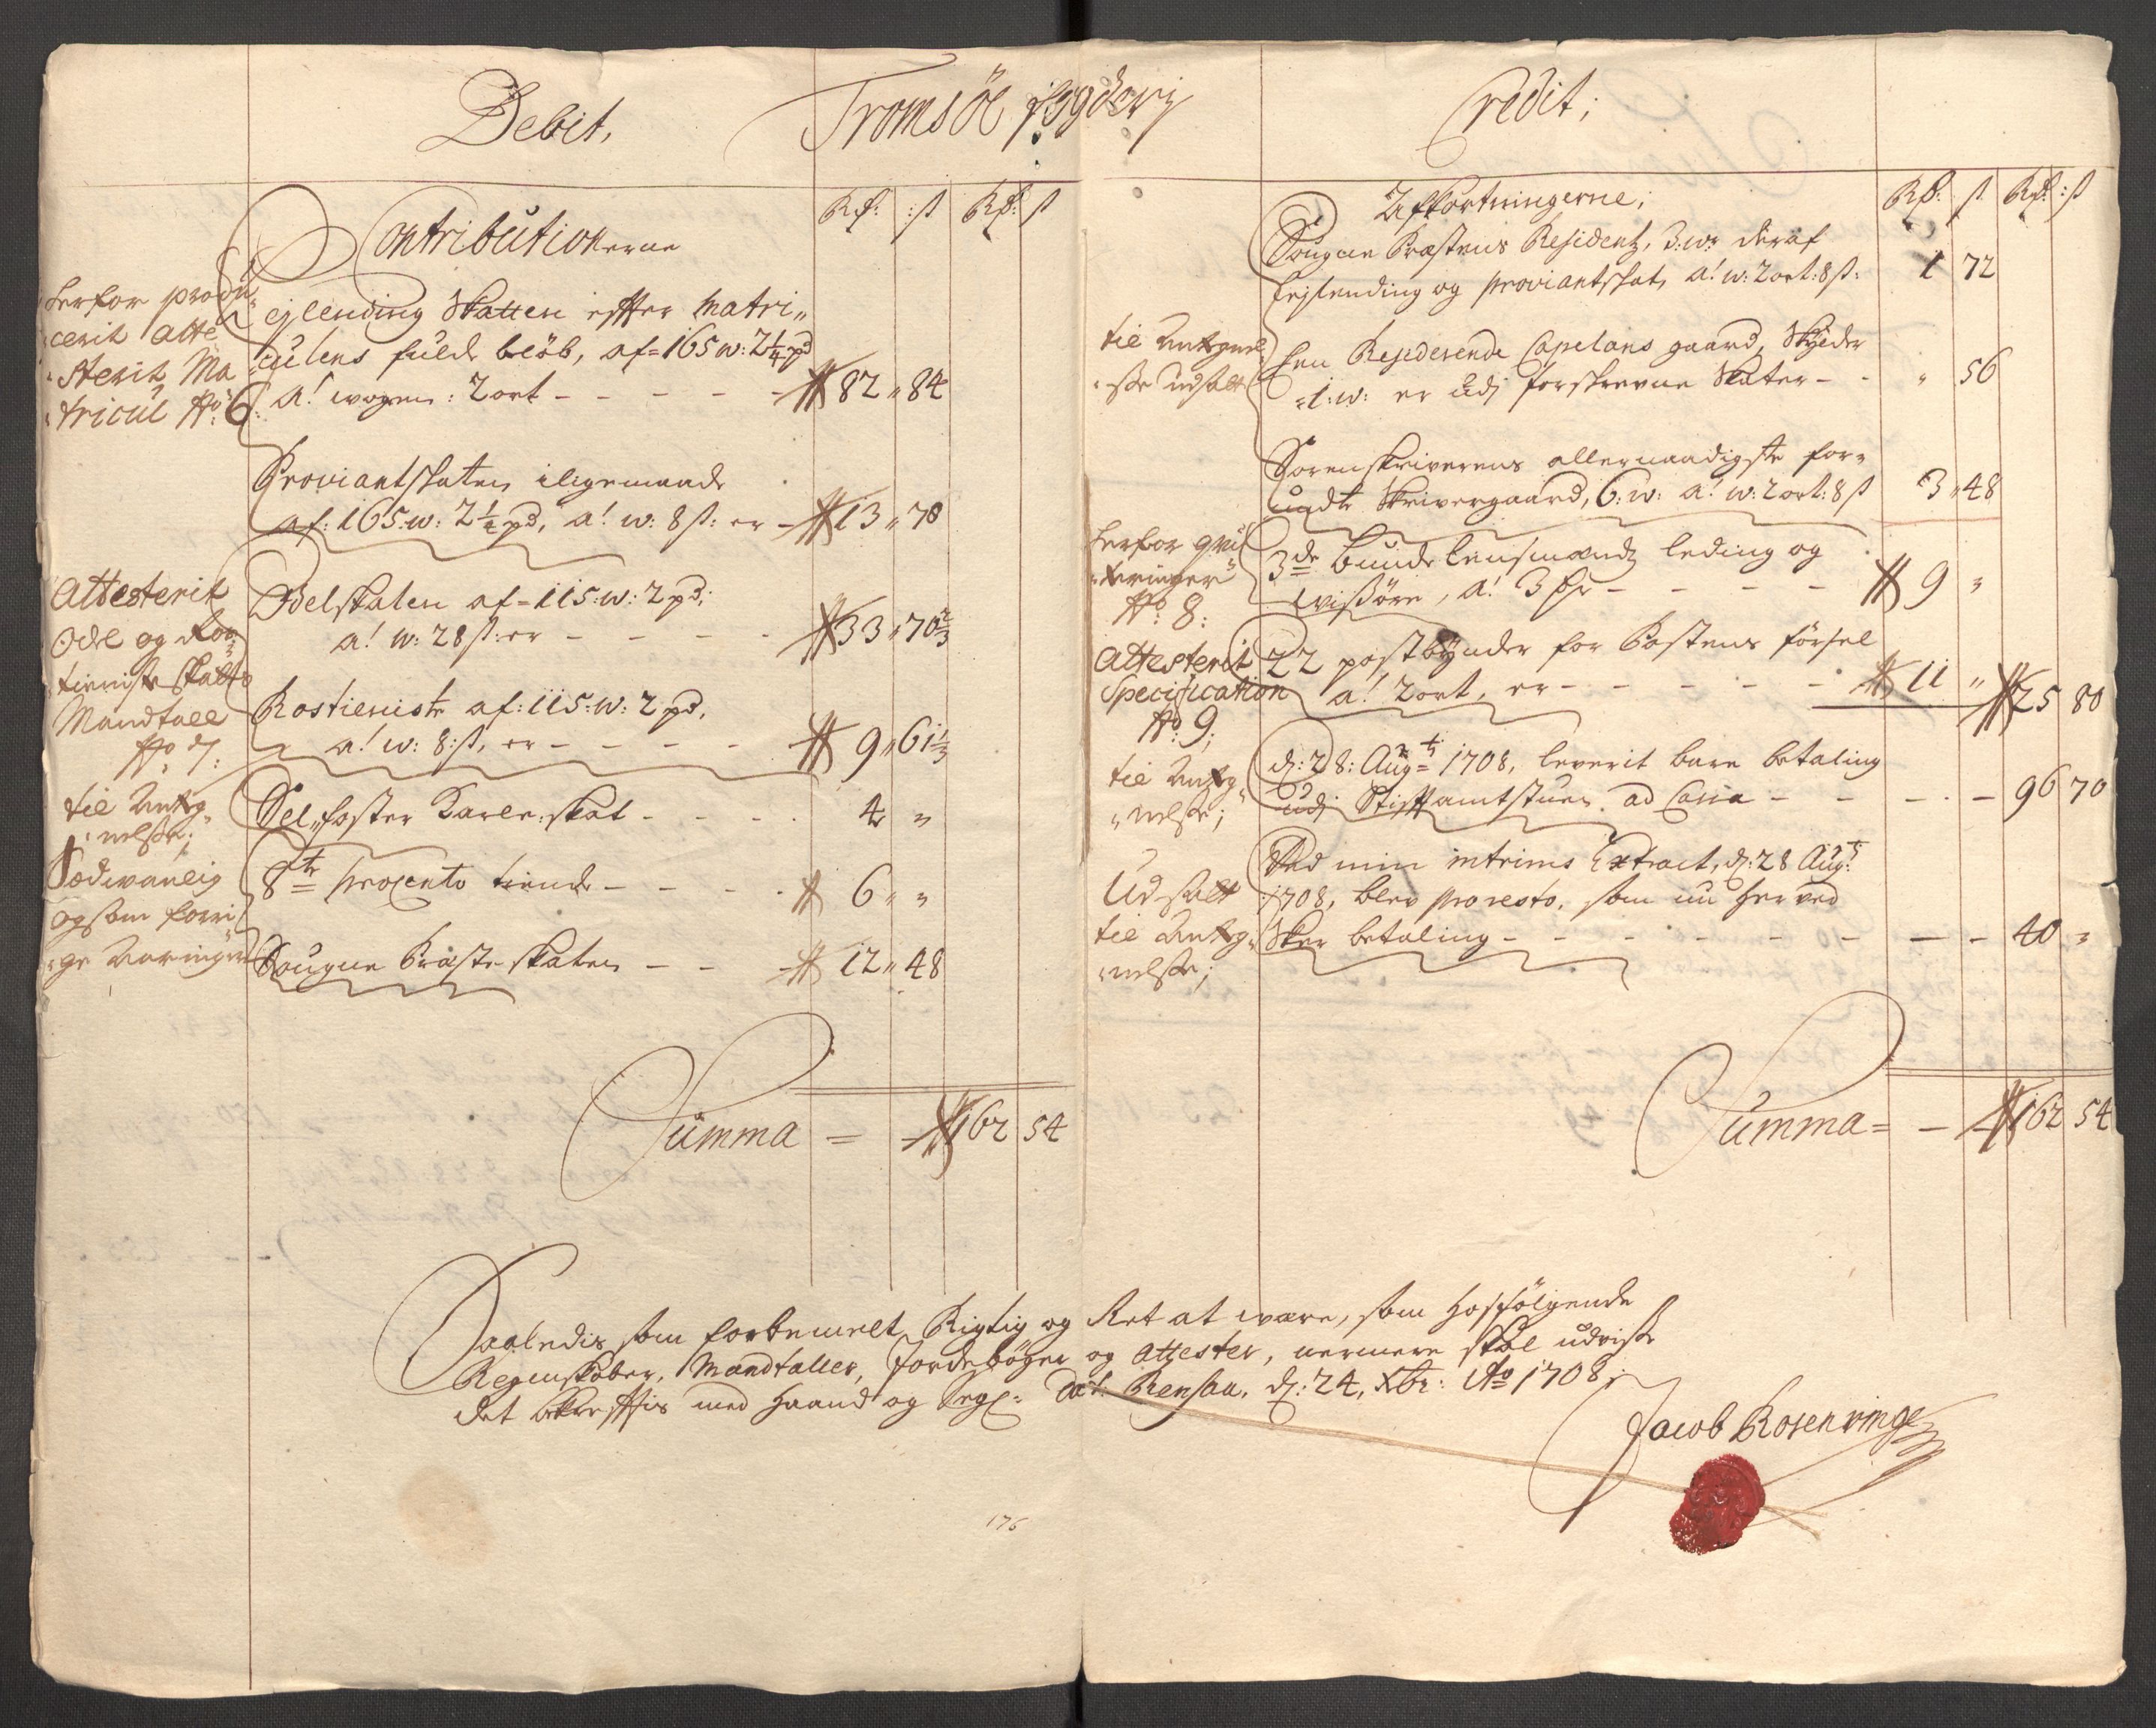 Debit,
Tromsöe fogderj
Contributionerne
Rd: :ß Rd: ß
Herfor produ
cerit atte
sterit Ma
tricul No: 6:
Lejlending Skatten effter Matri„
culens fulde beløb, af = 165 w: 2¼ pd
a! wogen: 2 ort - - - - - 82 „ 84
Proviantskaten iligemaade
af: 165: w: 2¼ pd, a! w: 8 ß: er - 13 „ 78
Attesterit
Odel og Ros
tieniste skatts
Mandtall
No: 7:
Odelskaten af = 115: w: 2 pd:
a! w: 28 ß: er - - - - 33 „ 70⅔
Rostieniste af: 115: w: 2 pd,
a! w: 8: ß, er - - - - 9 „ 61⅓
til Anteg
nelse;
Sel„foster Karle: skat - - - - 4 „
Sædvanlig
og som forri
ge Aaringer
8te procento tiende - - - - 6 „ „
Sougne Præste skaten - - - 12 „ 48
Summa = 162 54
Credit;
Afkortningerne;
Rd: ß Rd: :ß
Sougne Præstens Residentz, 3: w: deraf
Lejlending og proviantskat, a! w: 2 ort: 8 ß: 1 72
til Antegnel
se udsatt
Hen Residerende Capelans gaard, Skylder
1: w: er udj forskrevne Skater - - „ 56
Sorenskriverens allernaadigste for„
undte Skrivergaard, 6: w: a! w: 2 ort: 8 ß 3 „ 48
Herfor qvi
teringer
No: 8:
3de bunde lensmænds leding og
wißøre, a! 3 Rdr - - - - 9 „
Attesterit
Specification
No: 9;
22 postbønder for Postens førsel
a! 2 ort, er - - - - - 11 „ 25 80
til Anteg
nelse;
d: 28: Augti 1708, leverit bare betaling
udj Stifftamtstuen ad Casia - - - - 96 70
Udsatt
til Anteg
nelse;
Ved min intrims Extract, d: 28 Augti:
1708, blev pro resto, som nu her ved
Skeer betaling - - - - - - - 40 „
Summa = - - 162 54
Saaledis som forbemelt Rigtig og Ret at være, som hosfølgende
Regenskaber, Mandtaller, Jordebøger og attester, nermere skal udvise
det bekrefftis med Haand og Segl: Dat: Rensaa, d: 24, Xbr: Ao 1708;
Jacob Rosenvinge
176